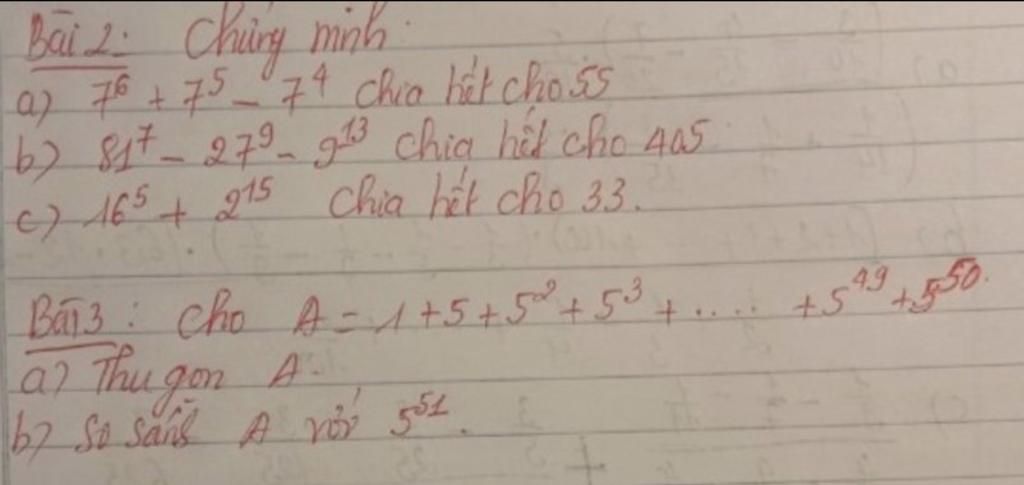 Bài 2: Chứng minh:
a) 7⁶ + 7⁵ - 7⁴ chia hết cho 55
b) 81⁷ - 27⁹ - 9¹³ chia hết cho 405
c) 16⁵ + 2¹⁵ chia hết cho 33.
Bài 3: Cho A = 1 + 5 + 5² + 5³ + ..... + 5⁴⁹ + 5⁵⁰.
a) Thu gọn A.
b) So sánh A với 5⁵¹.